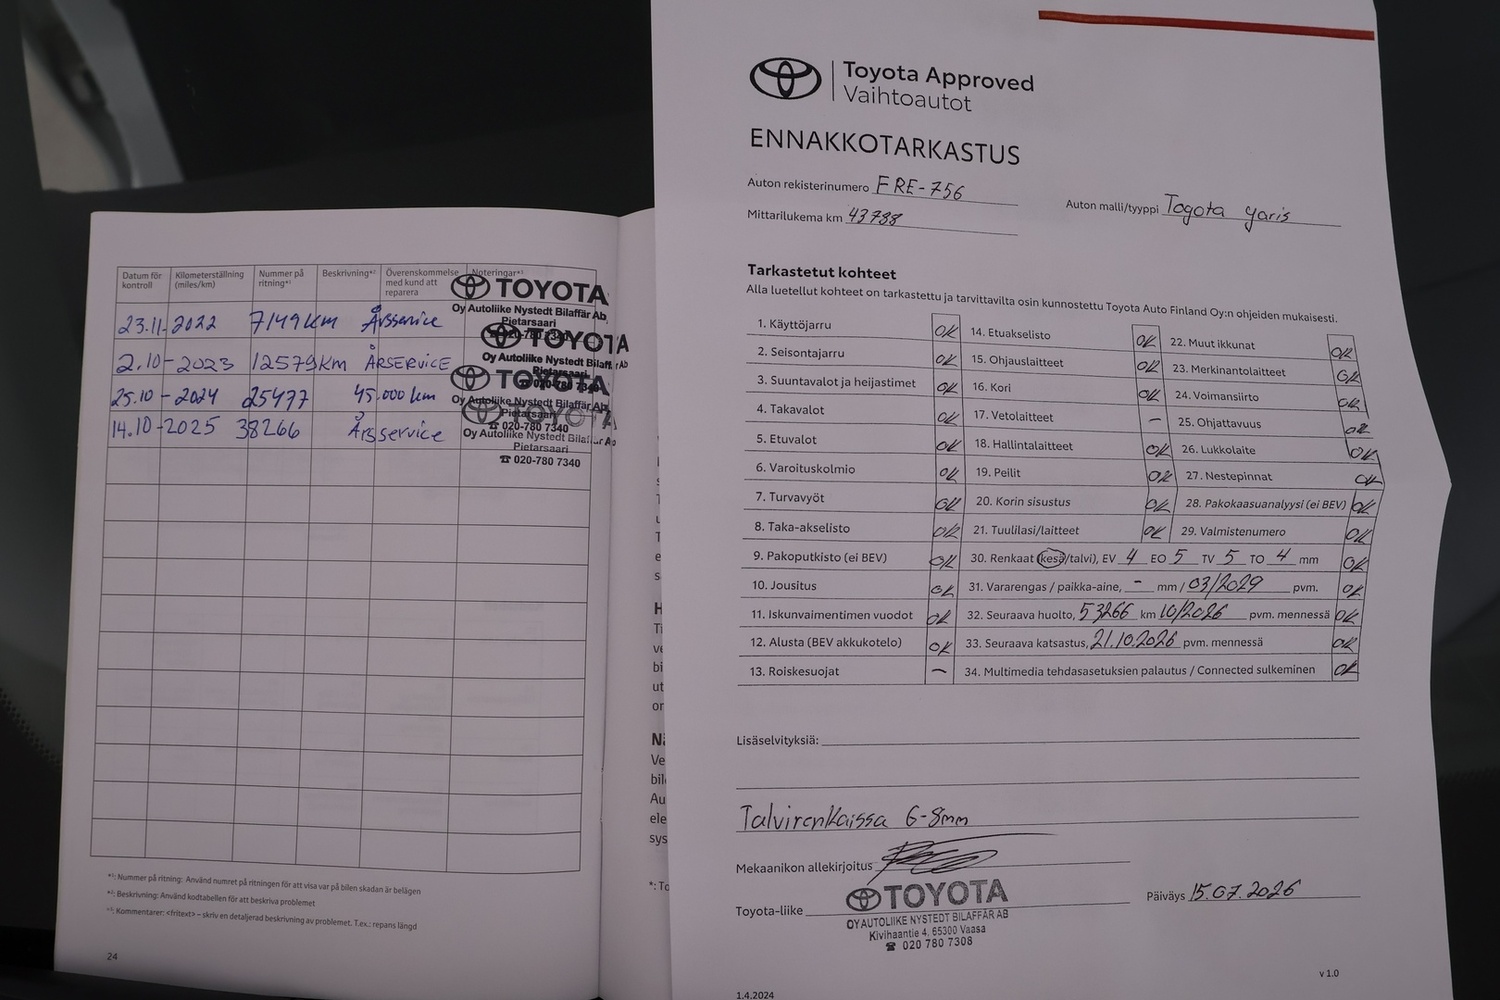 Datum för kontroll
Kilometerställning (miles/km)
Nummer på ritning*¹
Beskrivning*²
Överenskommelse med kund att reparera
Noteringar*³
23.11-2022 7149km Årsservice
2.10-2023 12579km ÅRSERVICE
25.10-2024 25477 45.000 km
14.10-2025 38266 Årsservice
TOYOTA
Oy Autoliike Nystedt Bilaffär Ab
Pietarsaari
☎ 020-780 7340
TOYOTA
Oy Autoliike Nystedt Bilaffär Ab
Pietarsaari
☎ 020-780 7340
TOYOTA
Oy Autoliike Nystedt Bilaffär Ab
Pietarsaari
☎ 020-780 7340
TOYOTA
Oy Autoliike Nystedt Bilaffär Ab
Pietarsaari
☎ 020-780 7340
*¹: Nummer på ritning: Använd numret på ritningen för att visa var på bilen skadan är belägen
*²: Beskrivning: Använd kodtabellen för att beskriva problemet
*³: Kommentarer: <fritext> – skriv en detaljerad beskrivning av problemet. T.ex.: repans längd
24
Toyota Approved
Vaihtoautot
ENNAKKOTARKASTUS
Auton rekisterinumero FRE-756
Auton malli/tyyppi Toyota yaris
Mittarilukema km 43788
Tarkastetut kohteet
Alla luetellut kohteet on tarkastettu ja tarvittavilta osin kunnostettu Toyota Auto Finland Oy:n ohjeiden mukaisesti.
1. Käyttöjarru OK
2. Seisontajarru OK
3. Suuntavalot ja heijastimet OK
4. Takavalot OK
5. Etuvalot OK
6. Varoituskolmio OK
7. Turvavyöt OK
8. Taka-akselisto OK
9. Pakoputkisto (ei BEV) OK
10. Jousitus OK
11. Iskunvaimentimen vuodot OK
12. Alusta (BEV akkukotelo) OK
13. Roiskesuojat –
14. Etuakselisto OK
15. Ohjauslaitteet OK
16. Kori OK
17. Vetolaitteet –
18. Hallintalaitteet OK
19. Peilit OK
20. Korin sisustus OK
21. Tuulilasi/laitteet OK
22. Muut ikkunat OK
23. Merkinantolaitteet OK
24. Voimansiirto OK
25. Ohjattavuus OK
26. Lukkolaite OK
27. Nestepinnat OK
28. Pakokaasuanalyysi (ei BEV) OK
29. Valmistenumero OK
30. Renkaat (kesä/talvi), EV 4 EO 5 TV 5 TO 4 mm OK
31. Vararengas / paikka-aine, – mm / 03/2029 pvm. OK
32. Seuraava huolto, 53266 km 10/2026 pvm. mennessä OK
33. Seuraava katsastus, 21.10.2026 pvm. mennessä OK
34. Multimedia tehdasasetuksien palautus / Connected sulkeminen OK
Lisäselvityksiä:
Talvirenkaissa 6-8mm
Mekaanikon allekirjoitus
Toyota-liike
TOYOTA
OY AUTOLIIKE NYSTEDT BILAFFÄR AB
Kivihaantie 4, 65300 Vaasa
☎ 020 780 7308
Päiväys 15.07.2026
v 1.0
1.4.2024